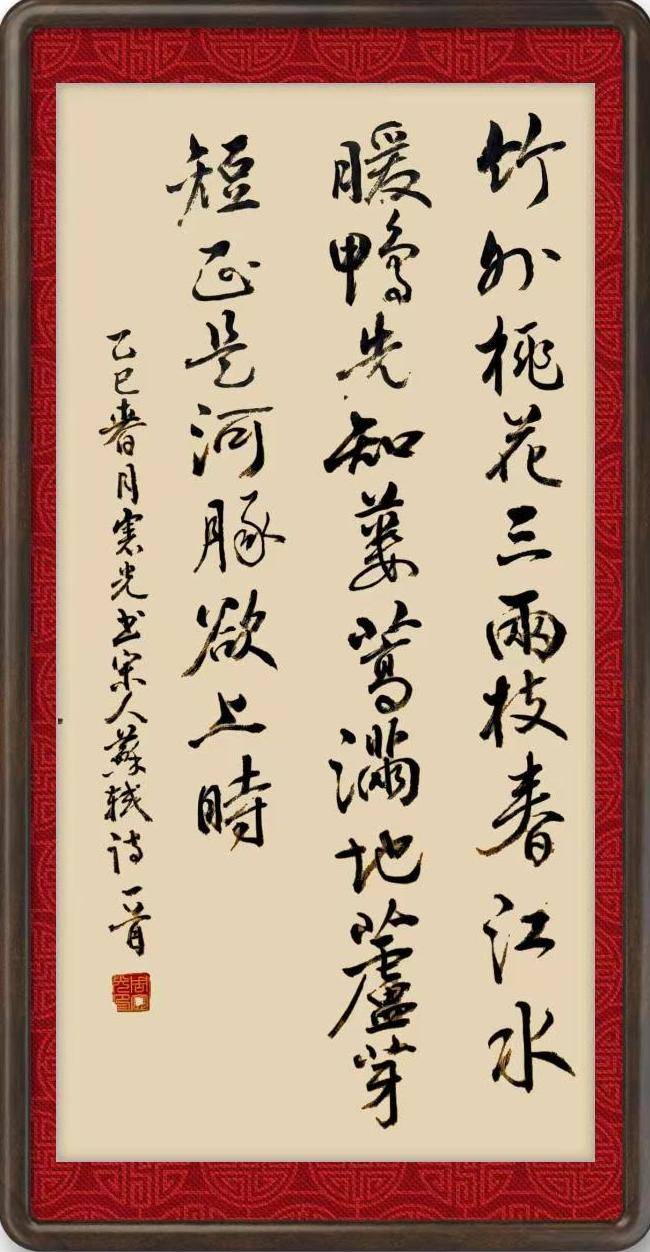 竹外桃花三兩枝春江水
暖鴨先知蔞蒿滿地蘆芽
短正是河豚欲上時
乙巳春月憲光书宋人蘇軾诗一首